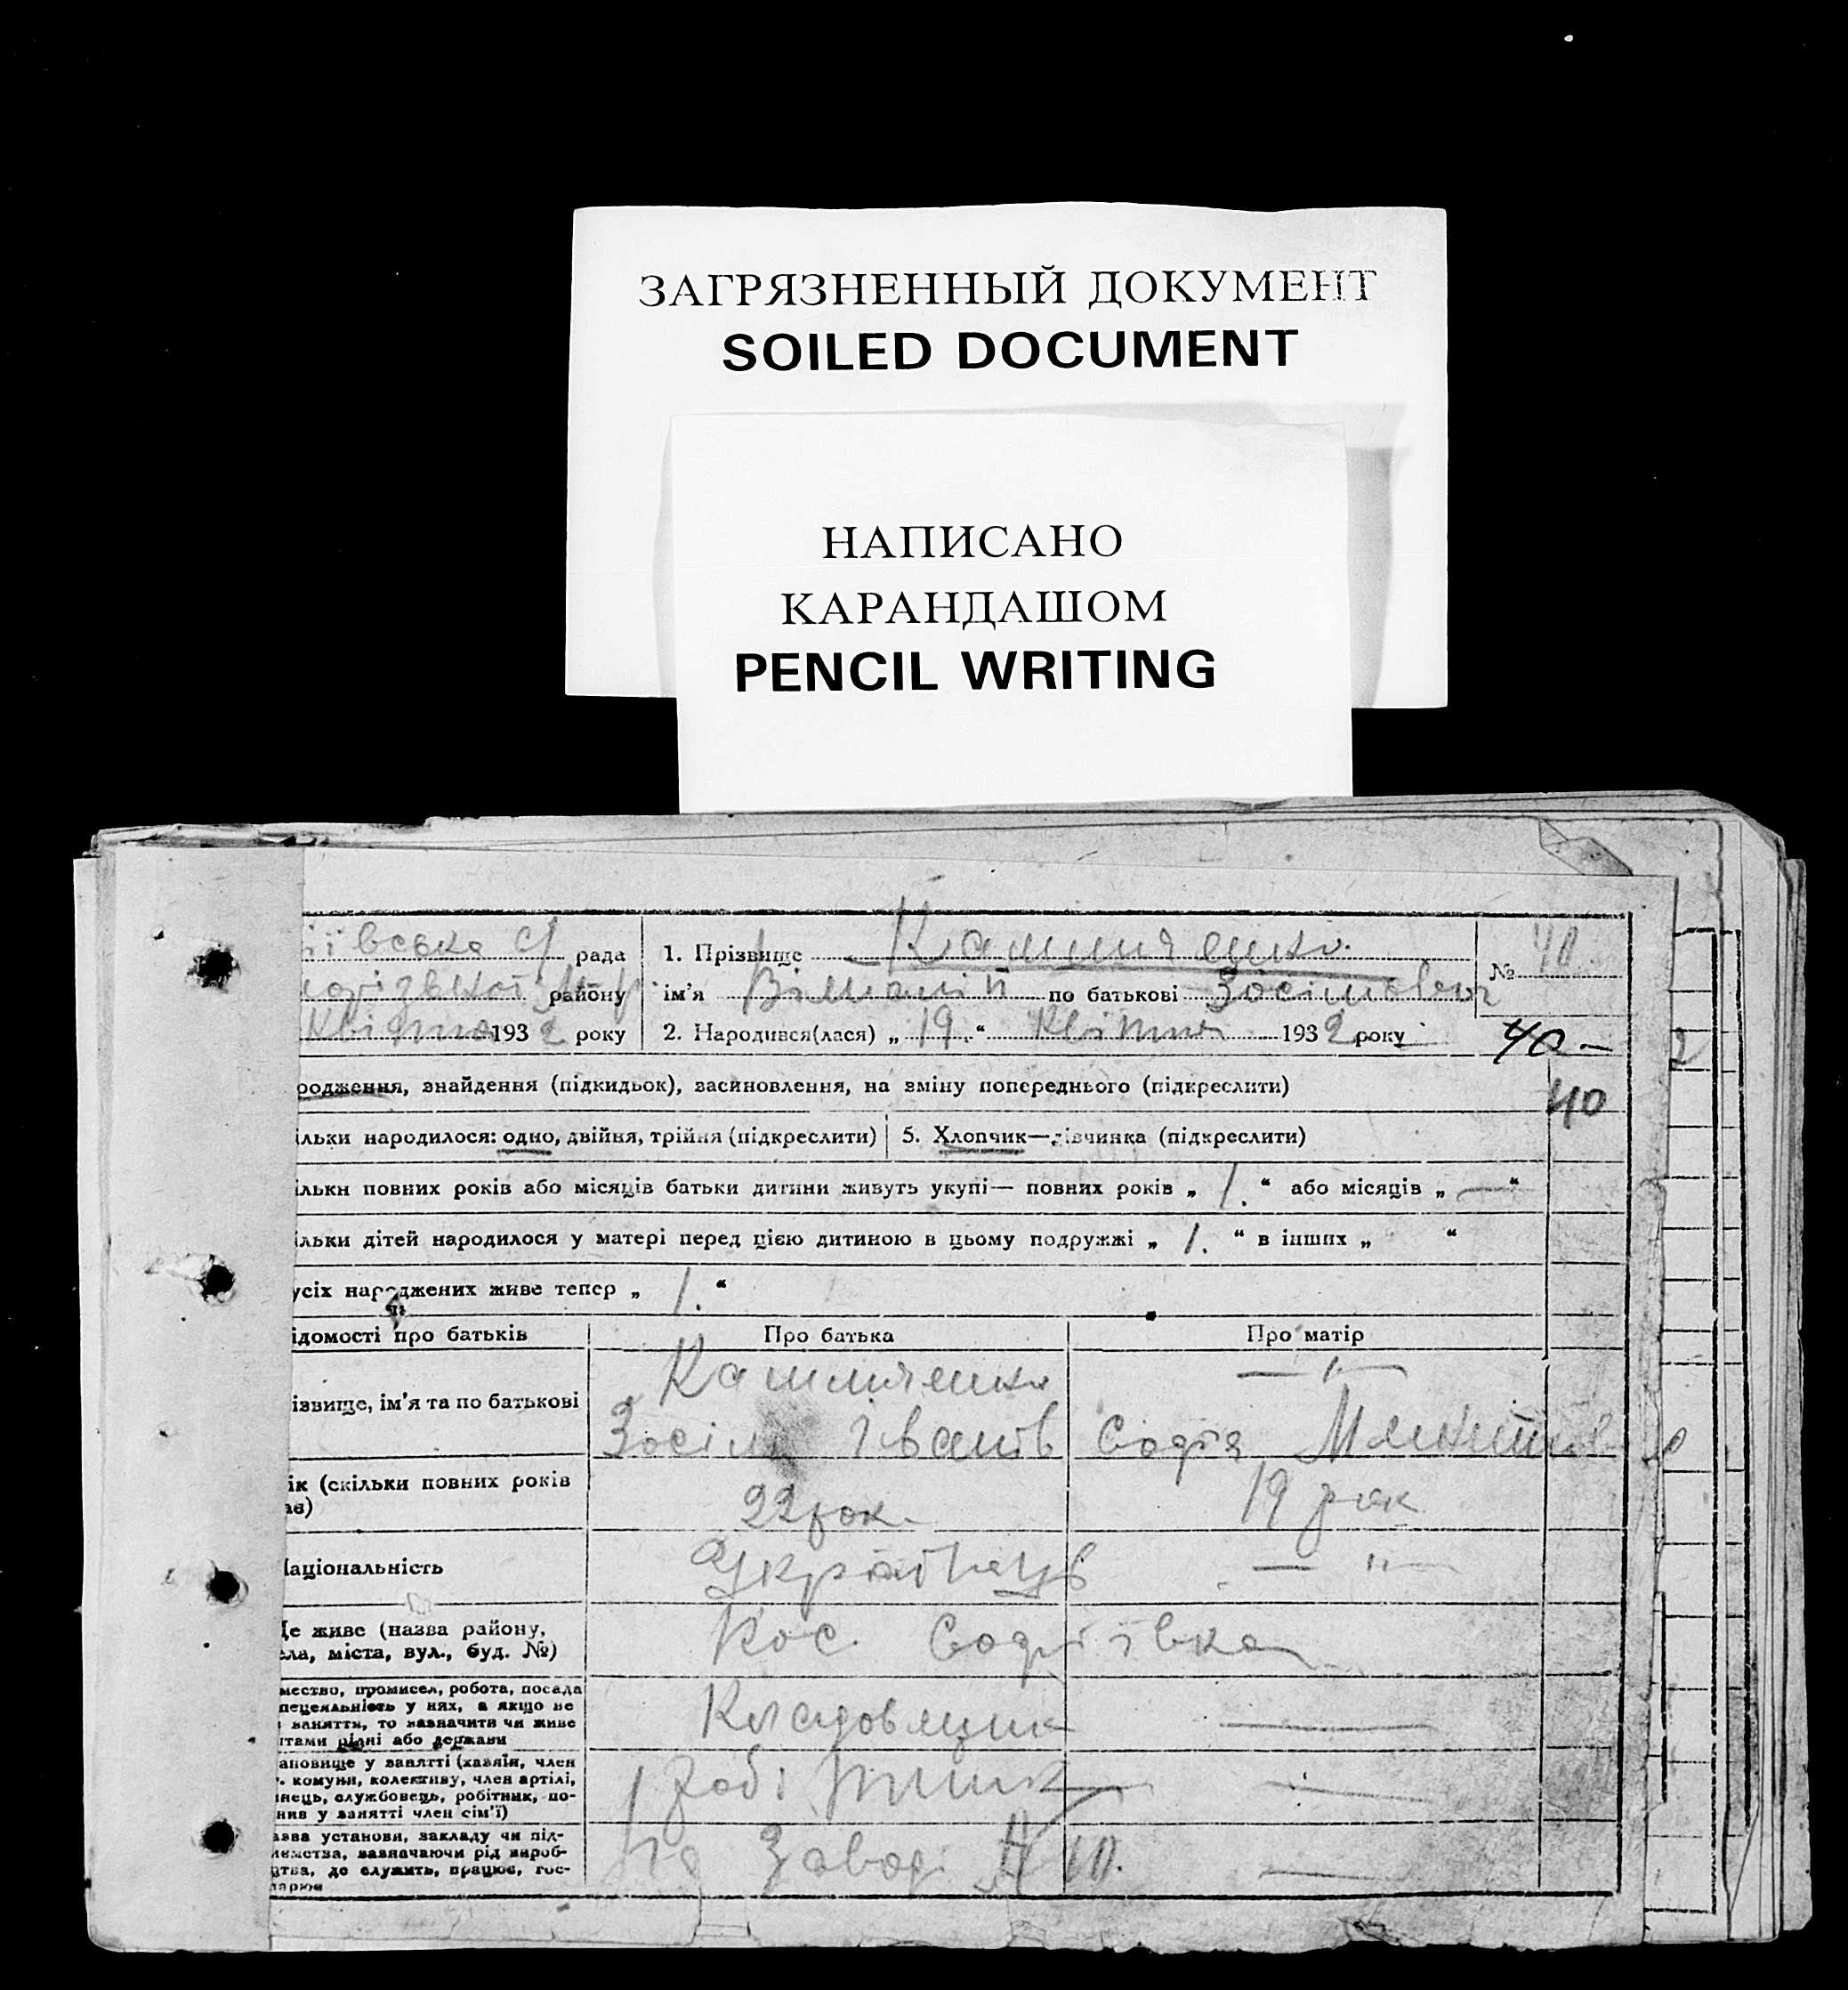 ЗАГРЯЗНЕННЫЙ ДОКУМЕНТ
SOILED DOCUMENT
НАПИСАНО
КАРАНДАШОМ
PENCIL WRITING
ївська с/ рада
району
Квітня 1932 року
1. Прізвище
ім'я Віталій по батькові Зосімович
2. Народився(лася) „ 19. “ Квітня 1932 року
№ 40
40 –
40
родження, знайдення (підкидьок), засиновлення, на зміну попереднього (підкреслити)
ільки народилося: одно, двійня, трійня (підкреслити)
5. Хлопчик—дівчинка (підкреслити)
ільки повних років або місяців батьки дитини живуть укупі— повних років „ 1. “ або місяців „ — “
ільки дітей народилося у матері перед цією дитиною в цьому подружжі „ 1. “ в інших „ “
усіх народжених живе тепер „ 1. “
ідомості про батьків
Про батька
Про матір
ізвище, ім'я та по батькові
— " —
Зосім Іванів
Софія
ік (скільки повних років
ав)
22 рок
19 рок
Національність
Українців
— " —
Це живе (назва району,
ела, міста, вул., буд. №)
Кос. Софіївка
мество, промисел, робота, посада
пеціяльність у них, а якщо не
заняття, то назначити чи живе
тами рідні або держави
Кладовщик
—
ановище у занятті (хазяїн, член
г. комуни, колективу, член артілі,
нець, службовець, робітник, по-
нив у занятті член сім'ї)
робітник
—
азва установи, закладу чи під-
иємства, зазначаючи рід вироб-
цтва, де служить, працює, гос-
парює
На Заводі № 10.
—